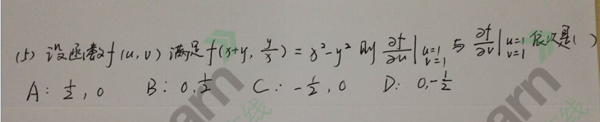 (5) 设函数f(u,v) 满足f(x+y, y/x) = x²-y² 则 ∂f/∂u|u=1 v=1 与 ∂f/∂v|u=1 v=1 依次是( )
A: 1/2, 0 B: 0, 1/2 C: -1/2, 0 D: 0, -1/2